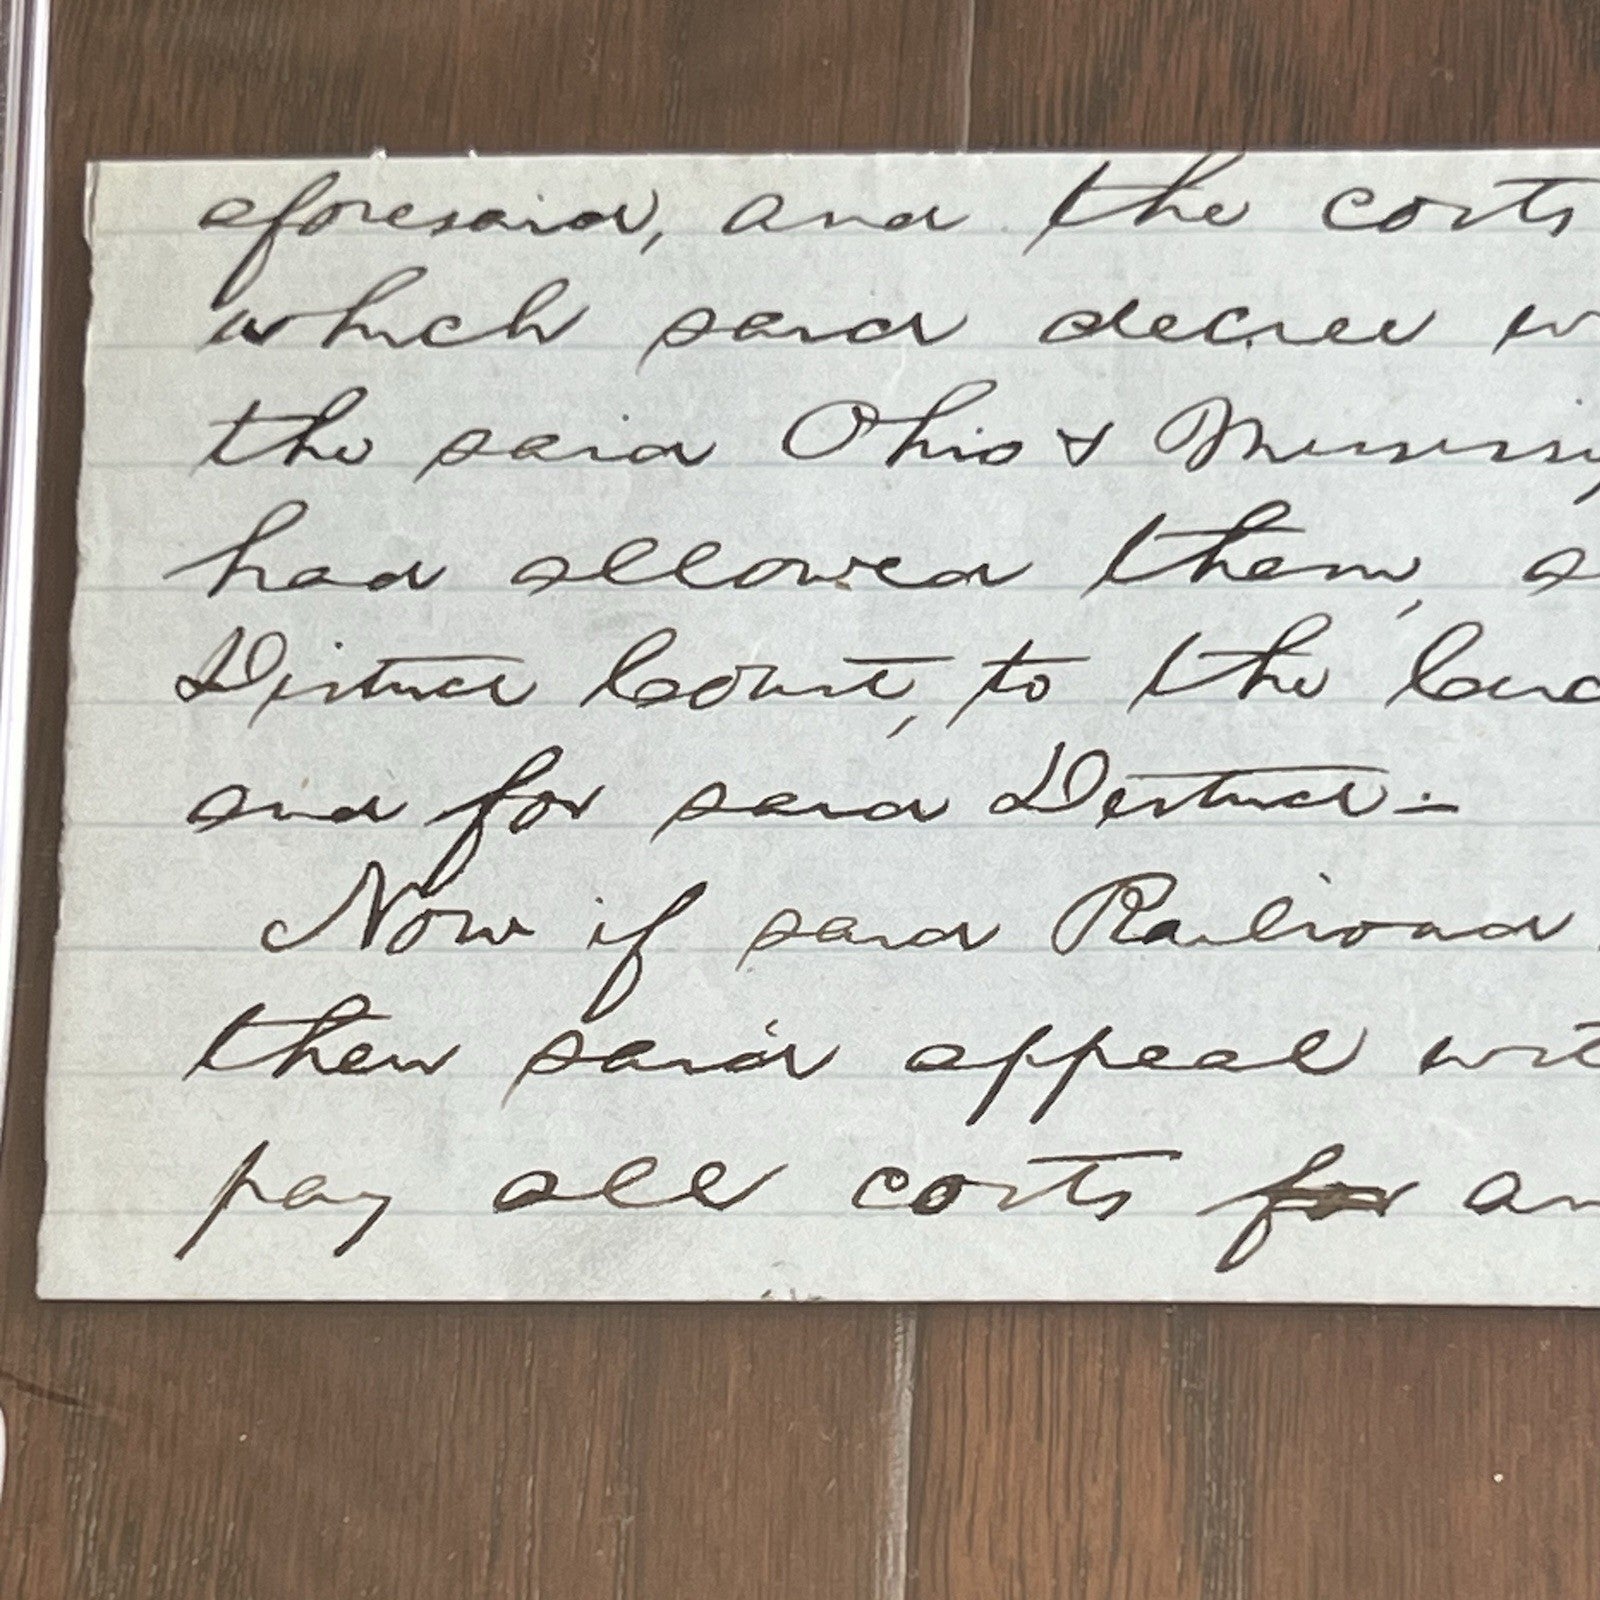 aforesaid, and the costs
which said decree w
the said Ohio & Mississip
had allowed them, a
District Court, to the
and for said District :-
Now if said Railroad
then said appeal
pay all costs for an